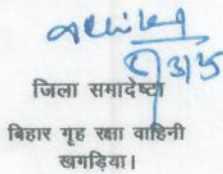 जिला समादेष्टा
बिहार गृह रक्षा वाहिनी
खगड़िया।